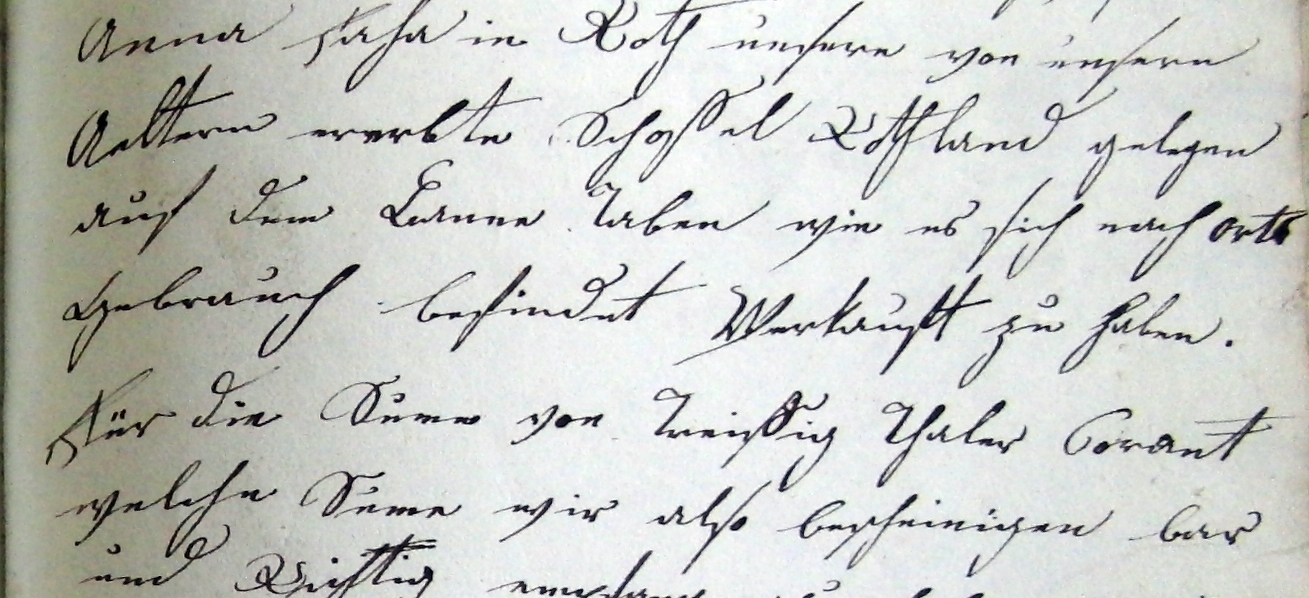 Anna Haha in Roth unsere von unsern
Aeltern ererbte Schoffel Rothland gelegen
auf dem Banne Taben wie es sich nach Orts
Gebrauch befindet Verkauft zu haben.
Für die Sume von Treißig Thaler Corant
welche Sume wir also bescheinigen bar
und Richtig